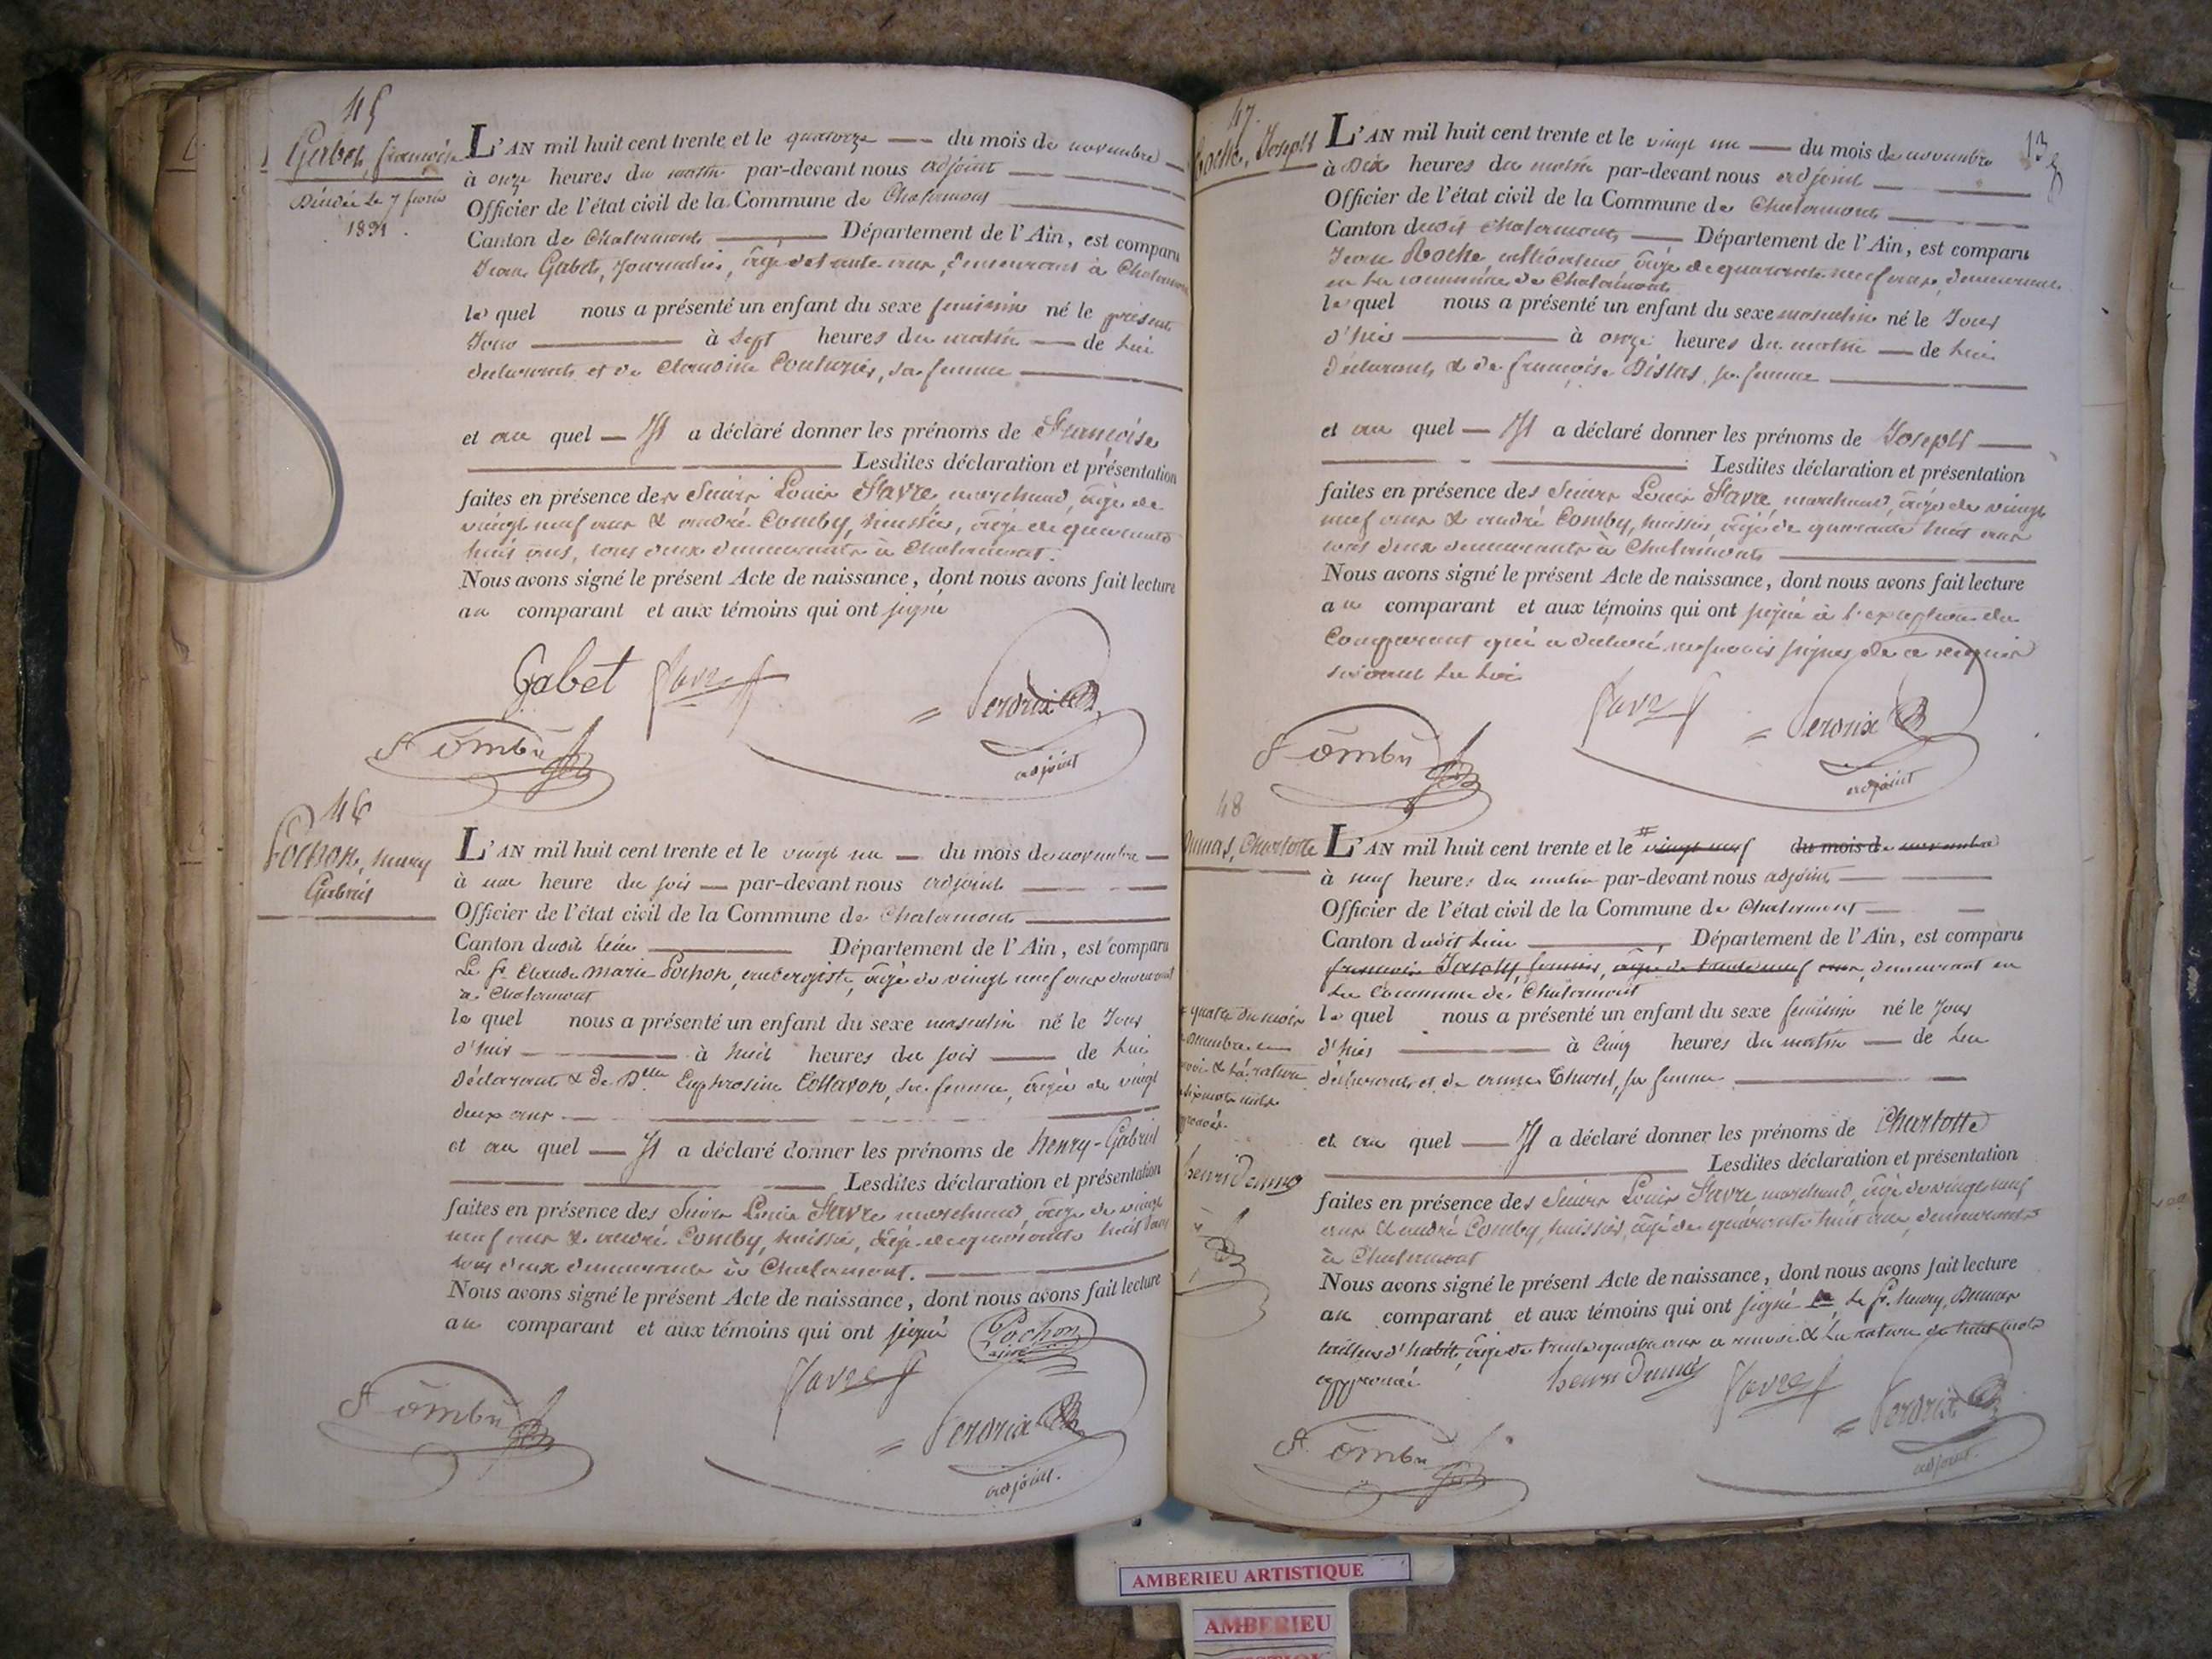 45
Gabet, françoise
Décédée le 7 février
1831.
L'AN mil huit cent trente et le quatorze du mois de novembre
à onze heures du matin par-devant nous adjoint
Officier de l'état civil de la Commune de Chalamont
Canton de Chalamont Département de l'Ain, est comparu
Jean Gabet, Journalier, âgé de ans, demeurant à Chalamont
le quel nous a présenté un enfant du sexe feminin né le présent
Jour à sept heures du matin de lui
déclarant et de Claudine sa femme
et au quel Il a déclaré donner les prénoms de Françoise
Lesdites déclaration et présentation
faites en présence des Sieurs Louis Favre, marchand, âgé de
vingt neuf ans & andré Comby, huissier, âgé de quarante
huit ans, tous deux demeurants à Chalamont.
Nous avons signé le présent Acte de naissance, dont nous avons fait lecture
au comparant et aux témoins qui ont signé
Gabet Favre
adjoint
46
Pochon, henry
Gabriel
L'AN mil huit cent trente et le vingt un du mois de novembre
à une heure du soir par-devant nous adjoint
Officier de l'état civil de la Commune de Chalamont
Canton dudit lieu Département de l'Ain, est comparu
Le sr. Claude Marie Pochon, aubergiste, âgé de vingt neuf ans demeurant
à Chalamont
le quel nous a présenté un enfant du sexe masculin né le Jour
d'hier à huit heures du soir de lui
Déclarant & de Delle Euphrosine Collavon, sa femme, âgée de vingt
deux ans
et au quel Il a déclaré donner les prénoms de henry-Gabriel
Lesdites déclaration et présentation
faites en présence des Sieurs Louis Favre marchand, âgé de vingt
neuf ans & andré Comby, huissier, âgé de quarante huit ans
tous deux demeurants à Chalamont.
Nous avons signé le présent Acte de naissance, dont nous avons fait lecture
au comparant et aux témoins qui ont signé Pochon
Favre
adjoint.
47.
Roche, Joseph
13
L'AN mil huit cent trente et le vingt un du mois de novembre
à Dix heures du matin par-devant nous adjoint
Officier de l'état civil de la Commune de Chalamont
Canton dudit Chalamont Département de l'Ain, est comparu
Jean Roche cultivateur âgé de quarante neuf ans, demeurant
en la commune de Chalamont
le quel nous a présenté un enfant du sexe masculin né le Jour
d'hier à onze heures du matin de lui
Déclarant & de françoise sa femme
et au quel Il a déclaré donner les prénoms de Joseph
Lesdites déclaration et présentation
faites en présence des Sieurs Louis Favre, marchand, âgé de vingt
neuf ans & andré Comby, huissier, âgé de quarante huit ans
tous deux demeurants à Chalamont
Nous avons signé le présent Acte de naissance, dont nous avons fait lecture
au comparant et aux témoins qui ont signé à l'exception du
Comparant qui a déclaré ne savoir signer de ce requis
suivant la loi
Favre
adjoint
48
Dumas, Charlotte
L'AN mil huit cent trente et le # vingt neuf du mois de novembre
à neuf heures du matin par-devant nous adjoint
Officier de l'état civil de la Commune de Chalamont
Canton dudit lieu Département de l'Ain, est comparu
françois Joseph âgé de trente neuf ans, demeurant en
la Commune de Chalamont
# quatre du mois
renvoi & la rature
de mots nuls
approuvés.
henri Dumas
le quel nous a présenté un enfant du sexe feminin né le Jour
d'hier à Cinq heures du matin de lui
déclarant et de sa femme
et au quel Il a déclaré donner les prénoms de Charlotte
Lesdites déclaration et présentation
faites en présence des Sieurs Louis Favre marchand, âgé de vingt neuf
ans & andré Comby, huissier, âgé de quarante huit ans, demeurants
à Chalamont
Nous avons signé le présent Acte de naissance, dont nous avons fait lecture
au comparant et aux témoins qui ont signé le Sr. henry Dumas
tailleur d'habits, âgé de trente quatre ans a renvoi & la rature de huit mots
approuvé henri Dumas Favre
adjoint.
AMBERIEU ARTISTIQUE
AMBERIEU